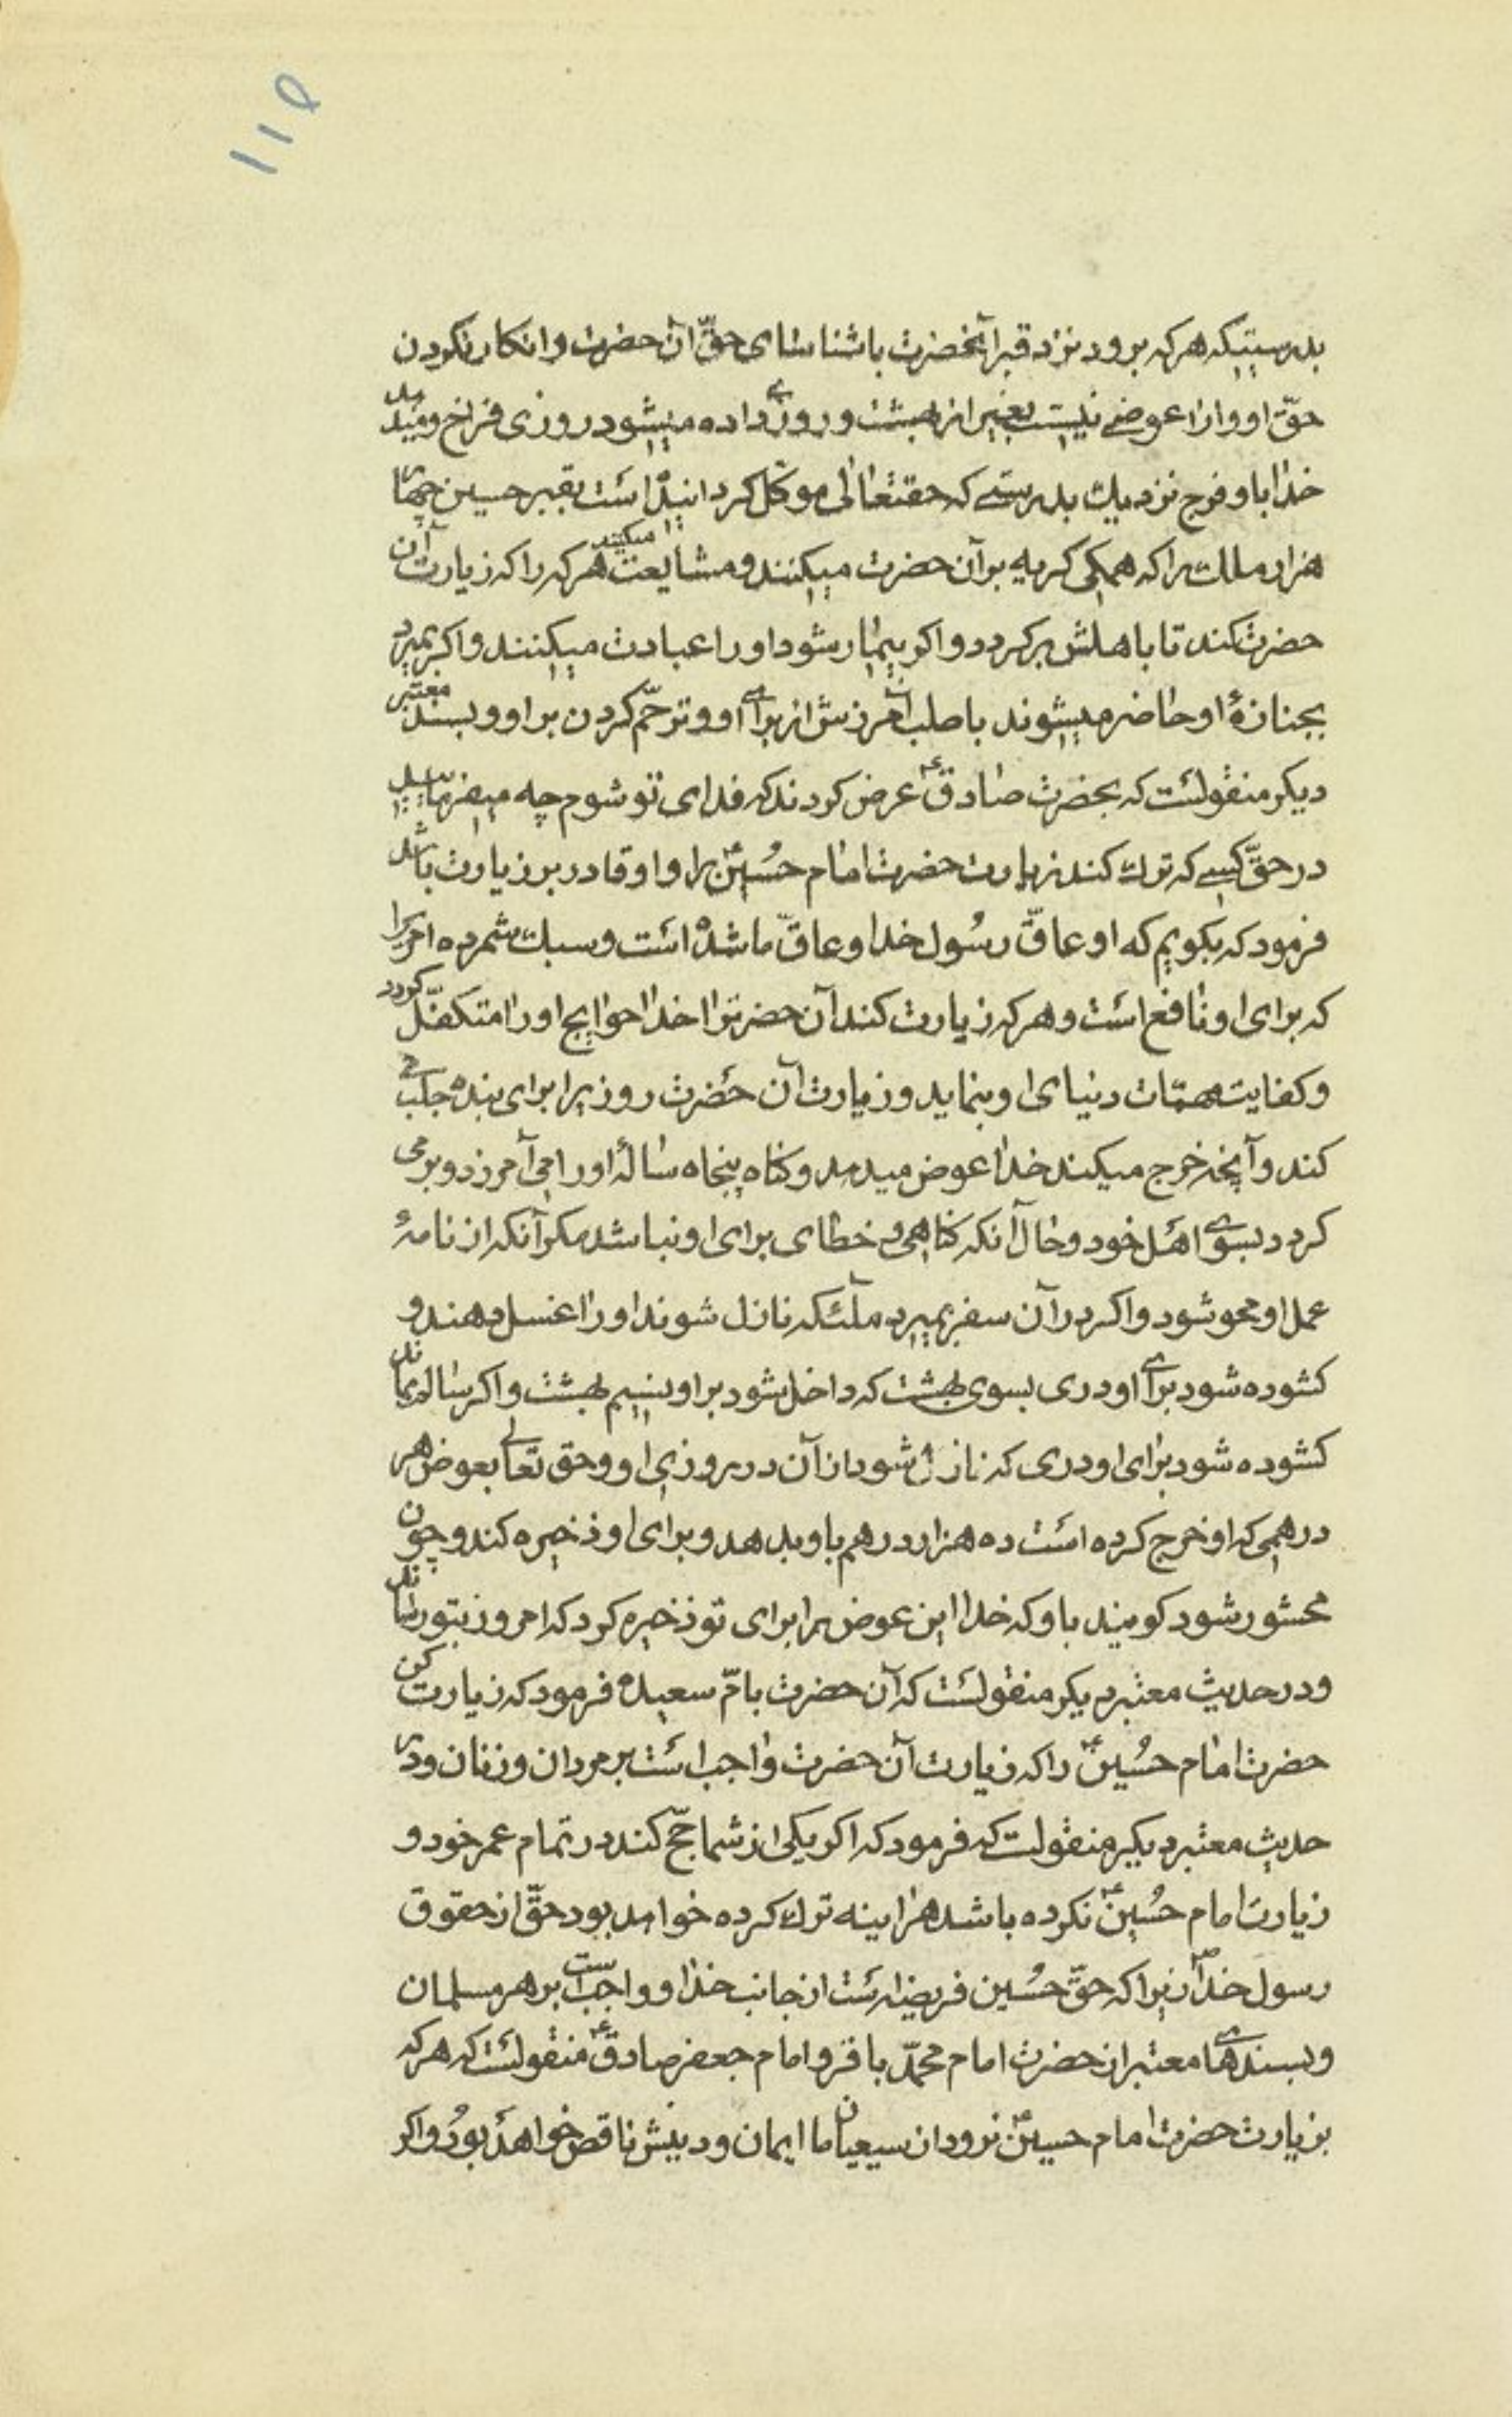 ۱۱۵
بدرستیکه هرکه برود نزد قبر آنحضرت باشناسای حقّ آن حضرت وانکار نکردن
حقّ او واورا عوضے نیست بغیر از بهشت وروزی داده میشود روزی فراخ ومیدهد
خدا باو فرج نزدیك بدرستے که حقتعالی موکّل کردانیده است بقبر حسین چهار
هزار ملك را که همکی کریه بر آن حضرت میکنند ومشایعت میکنند هرکه را که زیارت آن
حضرت کند تا باهلش برکردد واکر بیمار شود اورا عیادت میکنند واکر بمیرد
بجنازهٔ او حاضر میشوند باطلب آمرزش از برای او وترحّم کردن بر او وبسند معتبر
دیکر منقولست که بحضرت صادق ع عرض کردند که فدای تو شوم چه میفرمایید
در حقّ کسے که ترك کند زیارت حضرت امام حُسین ع را واو قادر بر زیارت باشد
فرمود که بکویم که او عاقّ رسُول خدا وعاقّ ما شده است وسبك شمرده امریرا
که برای او نافع است وهرکه زیارت کند آن حضرترا خدا حوایج اورا متکفّل کردد
وکفایت مهمّات دنیای او بنماید وزیارت آن حضرت روزیرا برای بنده جلب مے
کند وآنچه خرج میکند خدا عوض میدهد وکناه پنجاه سالهٔ اورا می آمرزد وبرمی
کردد بسوی اهل خود وحال آنکه کناهی و خطای برای او نباشد مکر آنکه از نامهٔ
عمل او محو شود واکر در آن سفر بمیرد ملآئکه نازل شوند اورا غسل دهند و
کشوده شود برای او دری بسوی بهشت که داخل شود بر او نسیم بهشت واکر سالم بماند
کشوده شود برای او دری که نازل شود از آن در روزی او وحق تعالی بعوض هر
درهمی که او خرج کرده است ده هزار درهم باو بدهد وبرای او ذخیره کند وچون
محشور شود کویند باو که خدا این عوض را برای تو ذخیره کرد که امروز بتو رساند
ودر حدیث معتبر دیکر منقولست که آن حضرت بامّ سعیده فرمود که زیارت کن
حضرت امام حُسین ع را که زیارت آن حضرت واجب است بر مردان وزنان ودر
حدیث معتبر دیکر منقولست که فرمود که اکر یکی از شما حجّ کند در تمام عمر خود و
زیارت امام حُسین ع نکرده باشد هر اینه ترك کرده خواهد بود حقّی از حقوق
رسول خدا ص زیرا که حقّ حُسین فریضه است از جانب خدا وواجب است بر هر مسلمان
وبسندهای معتبر از حضرت امام محمّد باقر وامام جعفر صادق ع منقولست که هرکه
بزیارت حضرت امام حسین ع نرود از سیعیان ما ایمان ودینش ناقص خواهد بود واکر